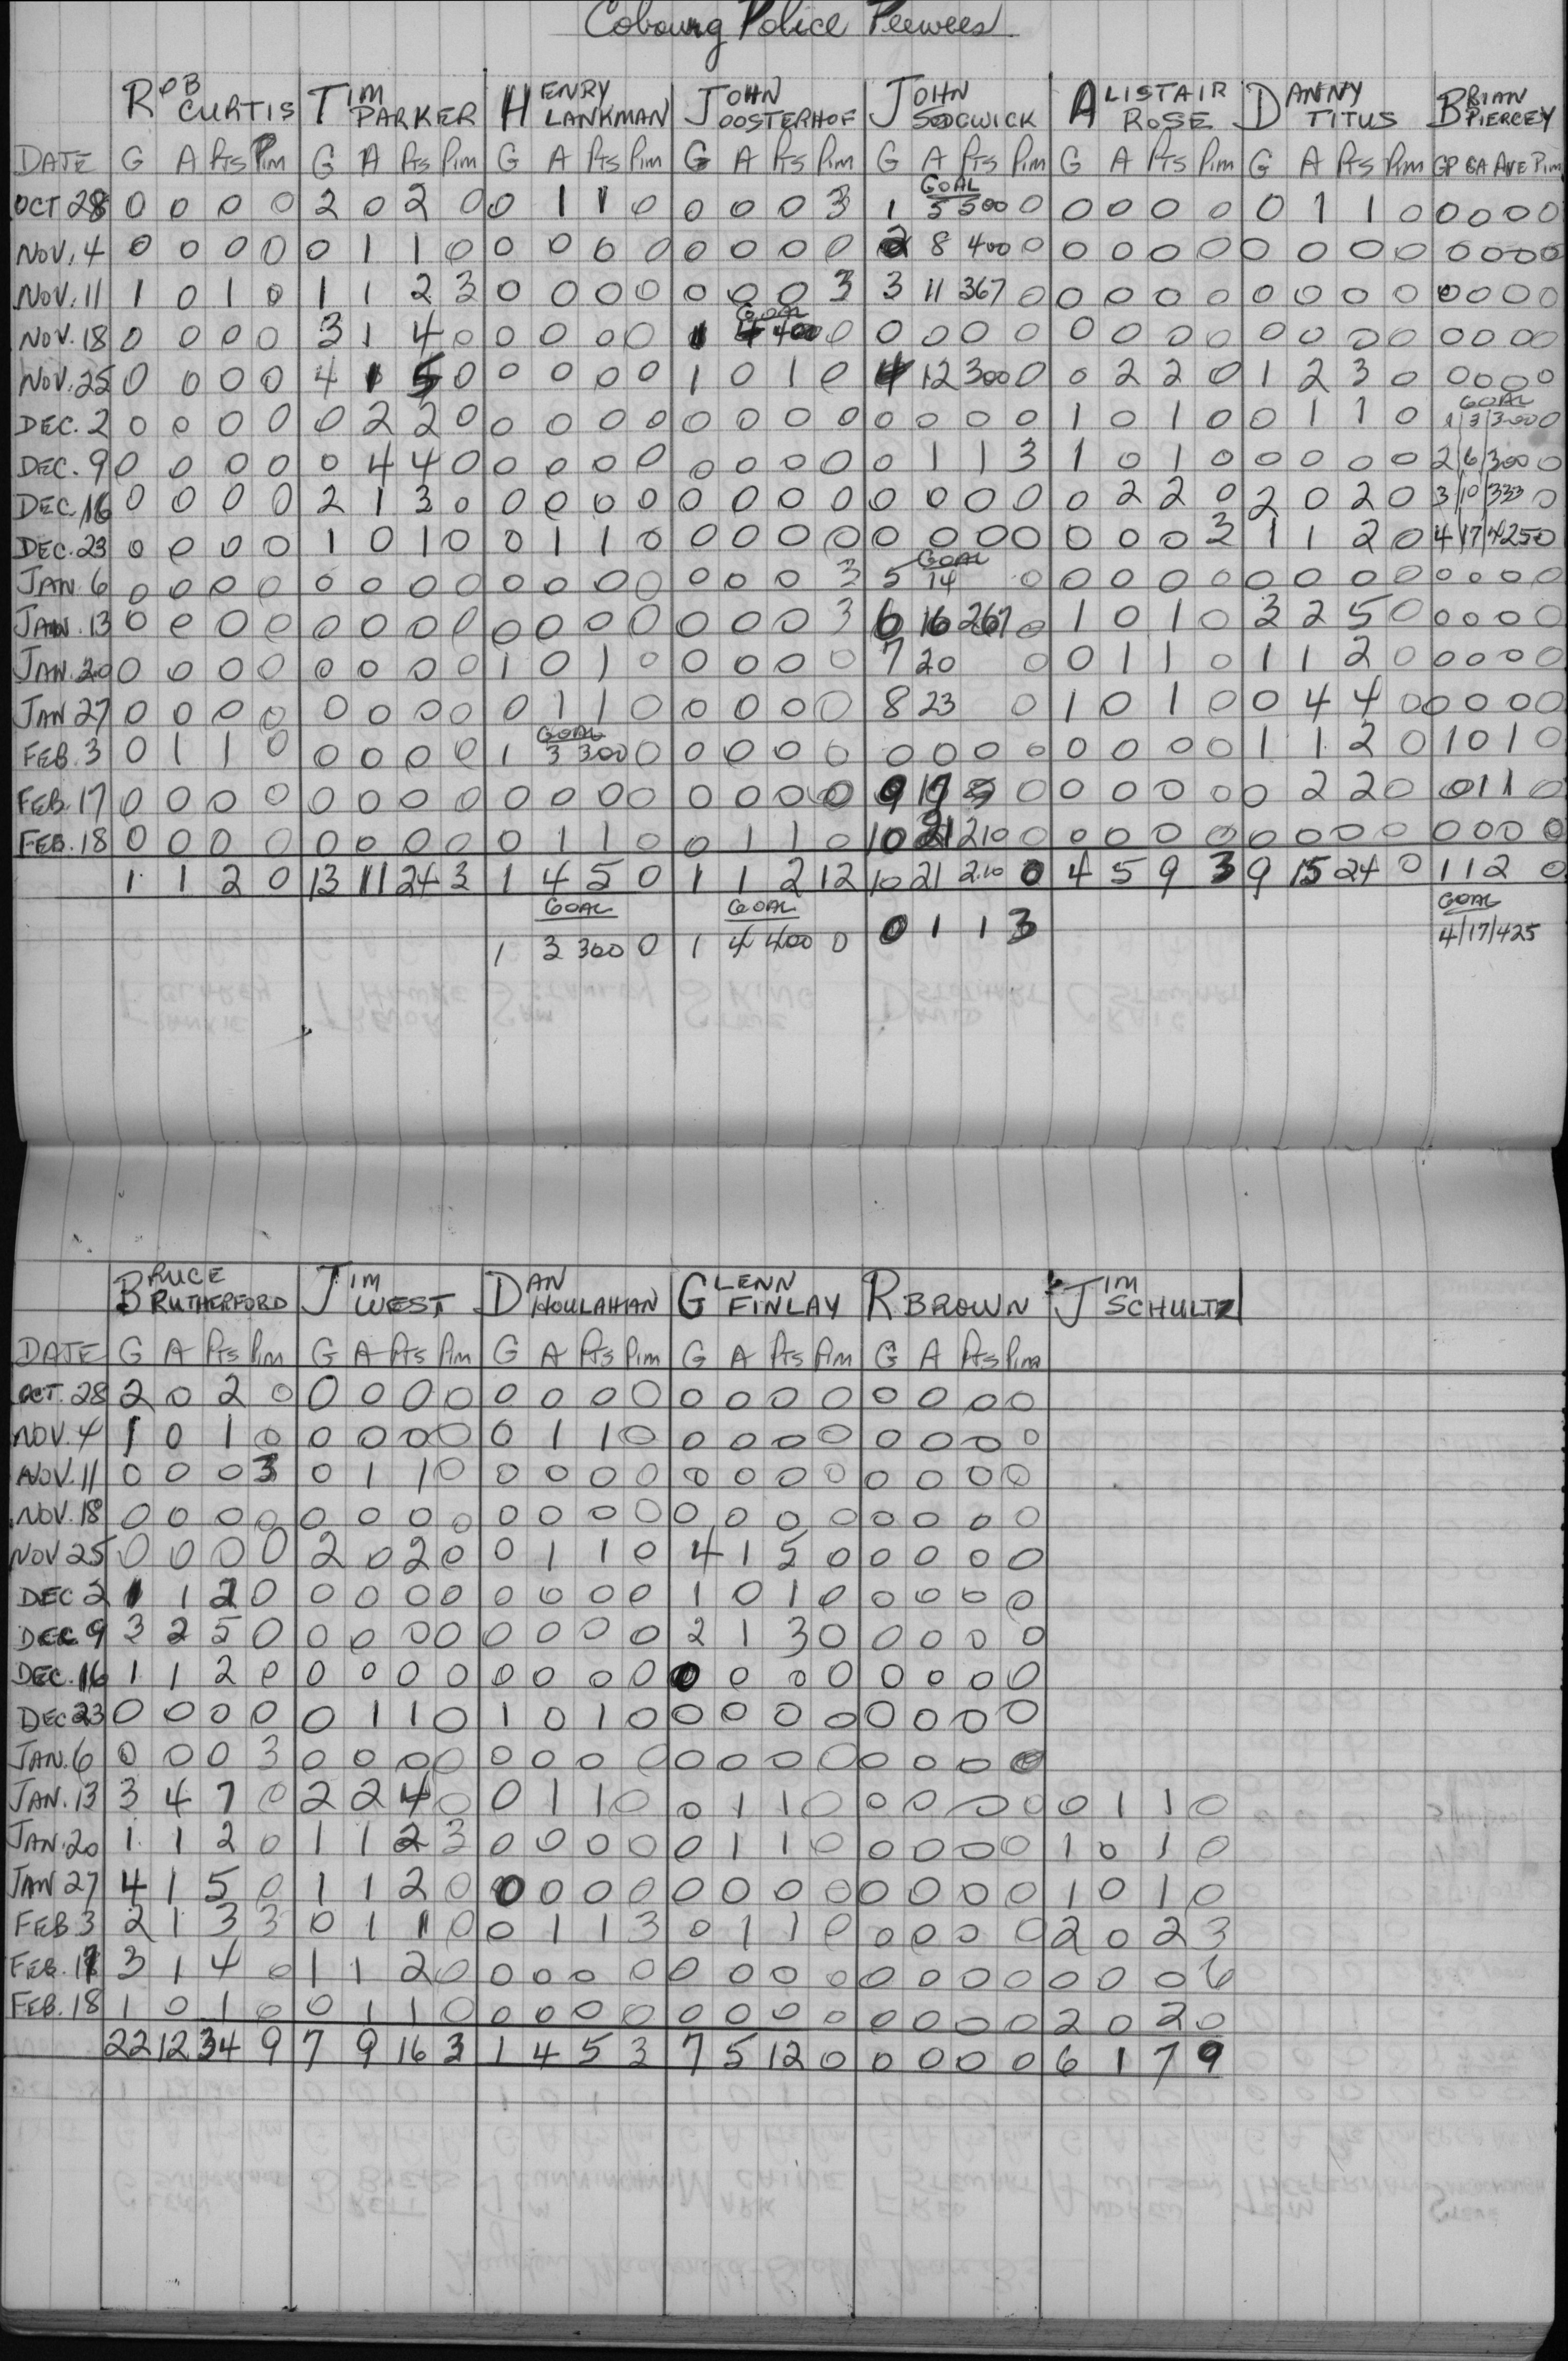 Cobourg Police Peewees
ROB CURTIS TIM PARKER HENRY LANKMAN JOHN OOSTERHOF JOHN SEDGWICK ALISTAIR ROSE DANNY TITUS BRIAN PIERCEY
DATE G A Pts Pim G A Pts Pim G A Pts Pim G A Pts Pim G A Pts Pim G A Pts Pim G A Pts Pim GP GA AVE Pim
GOAL
OCT 28 0 0 0 0 2 0 2 0 0 1 1 0 0 0 0 3 1 5 500 0 0 0 0 0 0 1 1 0 0 0 0 0
NOV. 4 0 0 0 0 0 1 1 0 0 0 0 0 0 0 0 0 2 8 400 0 0 0 0 0 0 0 0 0 0 0 0 0
NOV. 11 1 0 1 0 1 1 2 3 0 0 0 0 0 0 0 3 3 11 367 0 0 0 0 0 0 0 0 0 0 0 0 0
GOAL
NOV. 18 0 0 0 0 3 1 4 0 0 0 0 0 1 4 400 0 0 0 0 0 0 0 0 0 0 0 0 0 0 0 0 0
NOV. 25 0 0 0 0 4 1 5 0 0 0 0 0 1 0 1 0 4 12 300 0 0 2 2 0 1 2 3 0 0 0 0 0
GOAL
DEC. 2 0 0 0 0 0 2 2 0 0 0 0 0 0 0 0 0 0 0 0 0 1 0 1 0 0 1 1 0 1/3/300 0
DEC. 9 0 0 0 0 0 4 4 0 0 0 0 0 0 0 0 0 0 1 1 3 1 0 1 0 0 0 0 0 2/6/300 0
DEC. 16 0 0 0 0 2 1 3 0 0 0 0 0 0 0 0 0 0 0 0 0 0 2 2 0 2 0 2 0 3/10/333 0
DEC. 23 0 0 0 0 1 0 1 0 0 1 1 0 0 0 0 0 0 0 0 0 0 0 0 3 1 1 2 0 4/17/425 0
GOAL
JAN. 6 0 0 0 0 0 0 0 0 0 0 0 0 0 0 0 3 5 14 0 0 0 0 0 0 0 0 0 0 0 0 0
JAN. 13 0 0 0 0 0 0 0 0 0 0 0 0 0 0 0 3 6 16 267 0 1 0 1 0 3 2 5 0 0 0 0 0
JAN. 20 0 0 0 0 0 0 0 0 1 0 1 0 0 0 0 0 7 20 0 0 1 1 0 1 1 2 0 0 0 0 0
JAN 27 0 0 0 0 0 0 0 0 0 1 1 0 0 0 0 0 8 23 0 1 0 1 0 0 4 4 0 0 0 0 0
GOAL
FEB. 3 0 1 1 0 0 0 0 0 1 3 300 0 0 0 0 0 0 0 0 0 0 0 0 0 1 1 2 0 1 0 1 0
FEB. 17 0 0 0 0 0 0 0 0 0 0 0 0 0 0 0 0 9 0 0 0 0 0 0 2 2 0 0 1 1 0
FEB. 18 0 0 0 0 0 0 0 0 0 1 1 0 0 1 1 0 10 21 210 0 0 0 0 0 0 0 0 0 0 0 0 0
1 1 2 0 13 11 24 3 1 4 5 0 1 1 2 12 10 21 210 0 4 5 9 3 9 15 24 0 1 1 2 0
GOAL GOAL GOAL
1 3 300 0 1 4 400 0 0 1 1 3 4/17/425
BRUCE RUTHERFORD JIM WEST DAN HOULAHAN GLENN FINLAY R BROWN JIM SCHULTZ
DATE G A Pts Pim G A Pts Pim G A Pts Pim G A Pts Pim G A Pts Pim
OCT. 28 2 0 2 0 0 0 0 0 0 0 0 0 0 0 0 0 0 0 0 0
NOV. 4 1 0 1 0 0 0 0 0 0 1 1 0 0 0 0 0 0 0 0 0
NOV. 11 0 0 0 3 0 1 1 0 0 0 0 0 0 0 0 0 0 0 0 0
NOV. 18 0 0 0 0 0 0 0 0 0 0 0 0 0 0 0 0 0 0 0 0
NOV 25 0 0 0 0 2 0 2 0 0 1 1 0 4 1 5 0 0 0 0 0
DEC 2 1 1 2 0 0 0 0 0 0 0 0 0 1 0 1 0 0 0 0 0
DEC 9 3 2 5 0 0 0 0 0 0 0 0 0 2 1 3 0 0 0 0 0
DEC. 16 1 1 2 0 0 0 0 0 0 0 0 0 0 0 0 0 0 0 0 0
DEC 23 0 0 0 0 0 1 1 0 1 0 1 0 0 0 0 0 0 0 0 0
JAN. 6 0 0 0 3 0 0 0 0 0 0 0 0 0 0 0 0 0 0 0 0
JAN. 13 3 4 7 0 2 2 4 0 0 1 1 0 0 1 1 0 0 0 0 0 0 1 1 0
JAN. 20 1 1 2 0 1 1 2 3 0 0 0 0 0 1 1 0 0 0 0 0 1 0 1 0
JAN 27 4 1 5 0 1 1 2 0 0 0 0 0 0 0 0 0 0 0 0 0 1 0 1 0
FEB 3 2 1 3 3 0 1 1 0 0 1 1 3 0 1 1 0 0 0 0 0 2 0 2 3
FEB. 17 3 1 4 0 1 1 2 0 0 0 0 0 0 0 0 0 0 0 0 0 0 0 0 6
FEB. 18 1 0 1 0 0 1 1 0 0 0 0 0 0 0 0 0 0 0 0 0 2 0 2 0
22 12 34 9 7 9 16 3 1 4 5 3 7 5 12 0 0 0 0 0 6 1 7 9